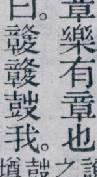 章樂有章也
曰。竷竷鼓我。